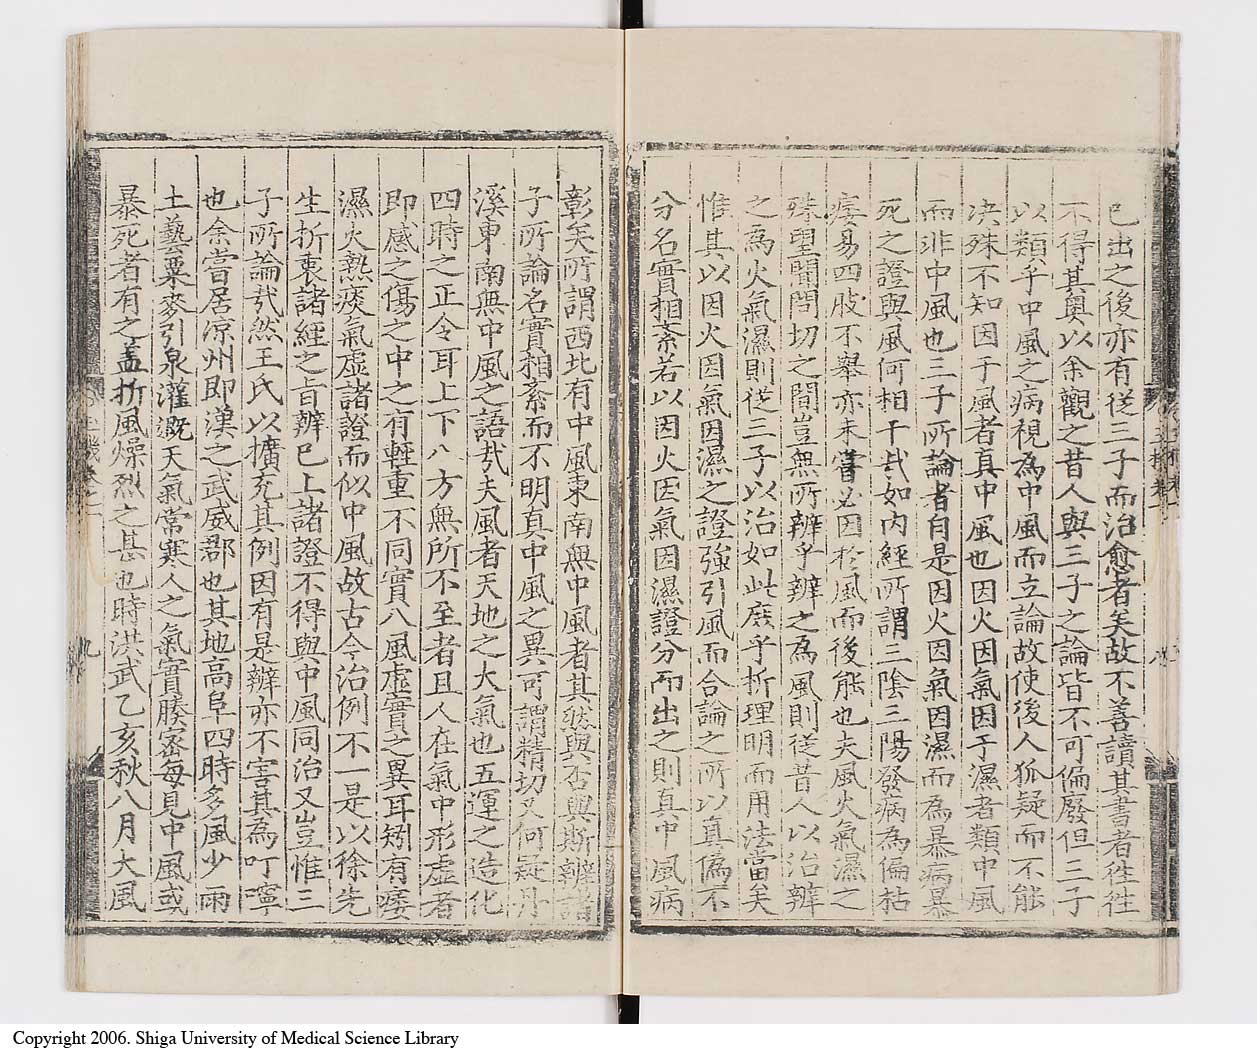 已出之後亦有從三子而治愈者矣故不善讀其書者徃徃
不得其奥以余觀之昔人與三子之論皆不可偏廢但三子
以類乎中風之病視為中風而立論故使後人狐疑而不能
决殊不知因于風者真中風也因火因氣因于濕者類中風
而非中風也三子所論者自是因火因氣因濕而為暴病暴
死之證與風何相干㢤如内經所謂三陰三陽發病為偏枯
痿易四肢不舉亦未嘗必因於風而後能也夫風火氣濕之
殊望聞問切之間豈無所辨乎辨之為風則從昔人以治辨
之為火氣濕則從三子以治如此庶乎析理明而用法當矣
惟其以因火因氣因濕之證強引風而合論之所以真偽不
分名實相紊若以因火因氣因濕證分而出之則真中風病
彰矣所謂西北有中風東南無中風者其然與否與斯辨諸
子所論名實相紊而不明真中風之異可謂精切又何疑丹
溪東南無中風之語㢤夫風者天地之大氣也五運之造化
四時之正令耳上下八方無所不至者且人在氣中形虚者
即感之傷之中之有輕重不同實八風虚實之異耳矧有痿
濕火熱痰氣虚諸證而似中風故古今治例不一是以徐先
生折衷諸經之旨辨已上諸證不得與中風同治又豈惟三
子所論㢤然王氏以擴充其例因有是辨亦不害其為叮嚀
也余嘗居凉州即漢之武威郡也其地高阜四時多風少雨
土藝粟麥引泉灌溉天氣常寒人之氣實腠密每見中風或
暴死者有之盖折風燥烈之甚也時洪武乙亥秋八月大風
九
Copyright 2006. Shiga University of Medical Science Library